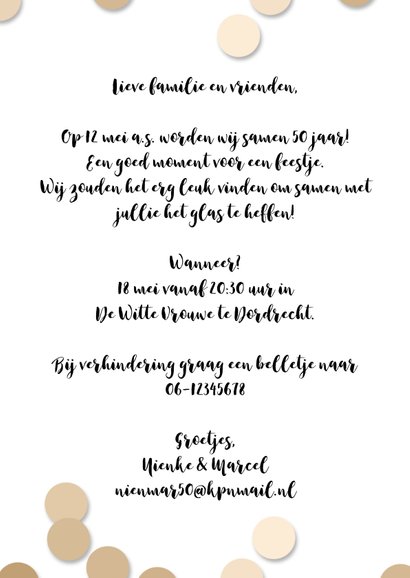 Lieve familie en vrienden,
Op 12 mei a.s. worden wij samen 50 jaar!
Een goed moment voor een feestje.
Wij zouden het erg leuk vinden om samen met
jullie het glas te heffen!
Wanneer?
18 mei vanaf 20:30 uur in
De Witte Vrouwe te Dordrecht.
Bij verhindering graag een belletje naar
06-12345678
Groetjes,
Nienke & Marcel
nienmar50@kpnmail.nl